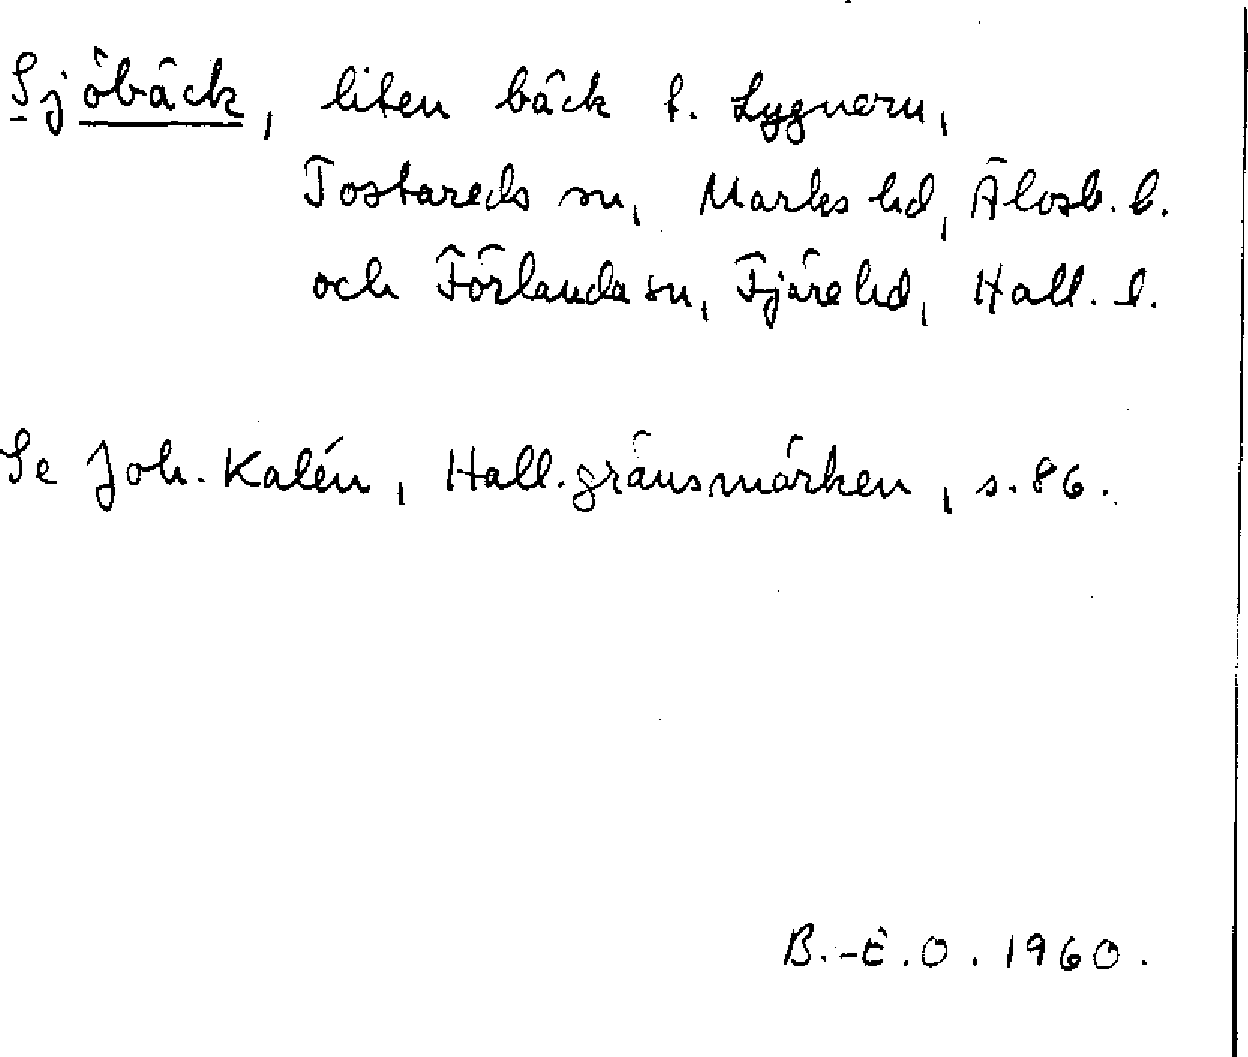 Sjöbäck, liten bäck t. Lygnern,
Tostareds sn, Marks hd, Älvsb. l.
och Förlanda sn, Fjäre hd, Hall. l.
Se Joh. Kalén, Hall. gränsmärken, s. 86.
B.-E.O. 1960.